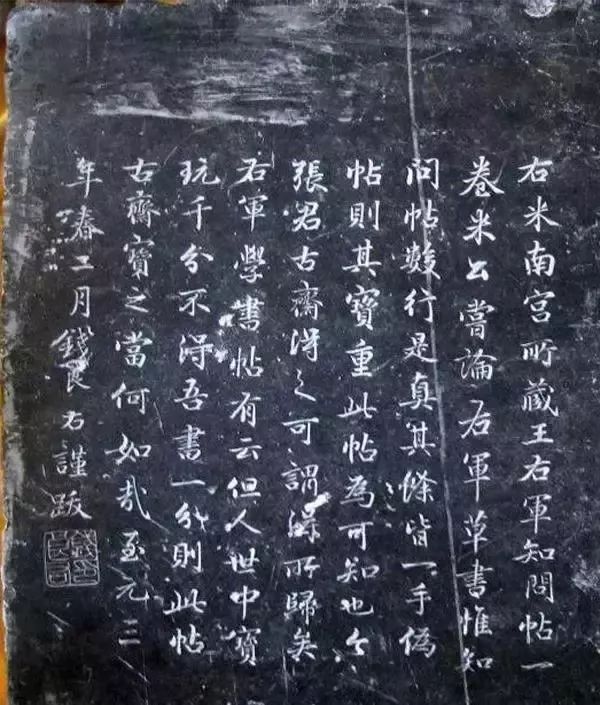 右米南宮所藏王右軍知問帖一
卷米公嘗論右軍草書惟知
問帖數行是真其餘皆一手偽
帖則其寶重此帖為可知也今
張君古齋得之可謂得所歸矣
右軍學書帖有云但人世中寶
玩千分不得吾書一分則此帖
古齋寶之當何如哉至元三
年春二月錢良右謹跋
錢良右